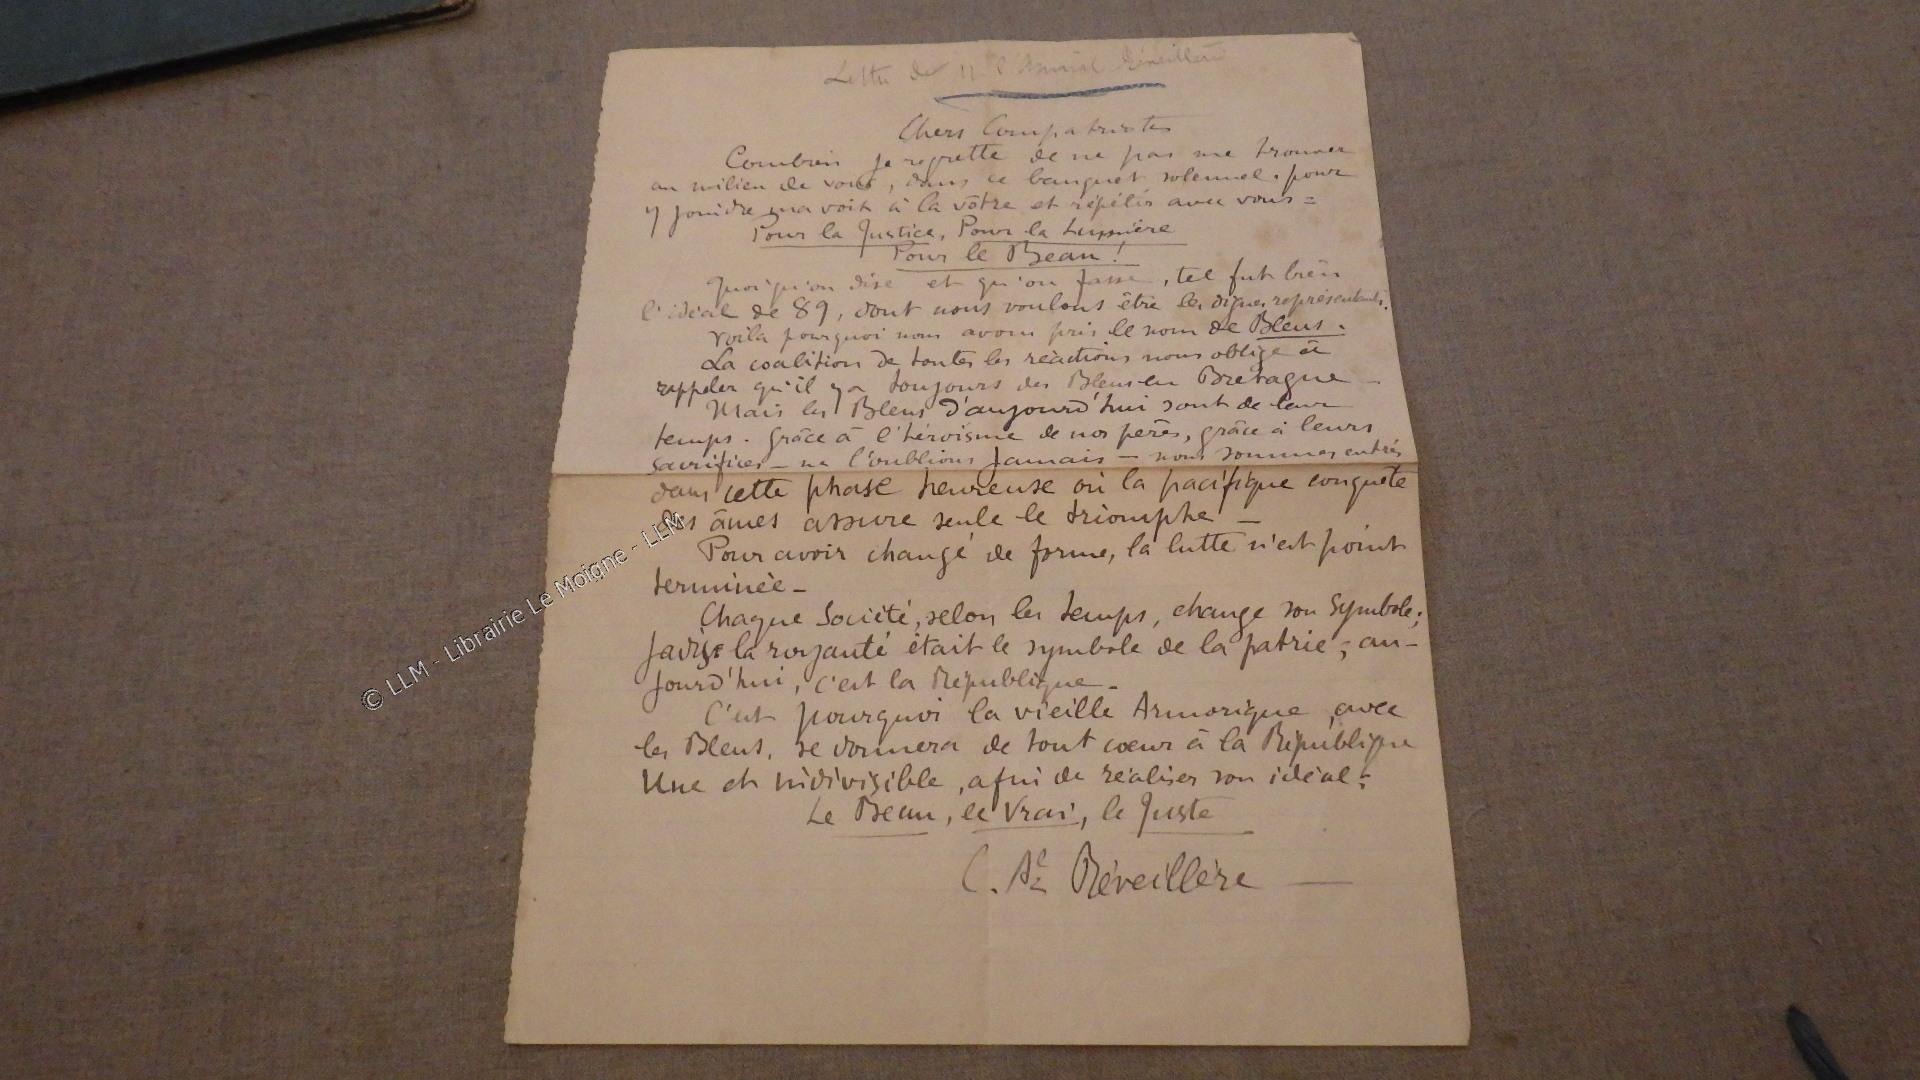 Lettre de Mr l'Amiral Réveillère
Chers Compatriotes
Combien je regrette de ne pas me trouver
au milieu de vous, dans ce banquet solennel, pour
y joindre ma voix à la vôtre et répéter avec vous =
Pour la Justice, Pour la Lumière
Pour le Beau !
Quoiqu'on dise et qu'on fasse, tel fut bien
l'idéal de 89, dont nous voulons être les dignes représentants.
Voilà pourquoi nous avons pris le nom de Bleus.
La coalition de toutes les réactions nous oblige à
rappeler qu'il y a toujours des Bleus en Bretagne -
Mais les Bleus d'aujourd'hui sont de leur
temps. Grâce à l'héroïsme de nos pères, grâce à leurs
sacrifices - ne l'oublions jamais - nous sommes entrés
dans cette phase heureuse où la pacifique conquête
des âmes assure seule le triomphe -
Pour avoir changé de forme, la lutte n'est point
terminée -
Chaque Société, selon les temps, change son symbole;
Jadis la royauté était le symbole de la patrie; au-
jourd'hui, c'est la République -
C'est pourquoi la vieille Armorique, avec
les Bleus, se donnera de tout coeur à la République
Une et indivisible, afin de réaliser son idéal:
Le Beau, le Vrai, le Juste
C. Al Réveillère
© LLM - Librairie Le Moigne - LLM